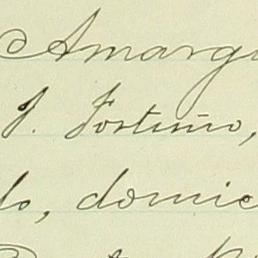 Amargu
J. Fortuño,
lo, domic